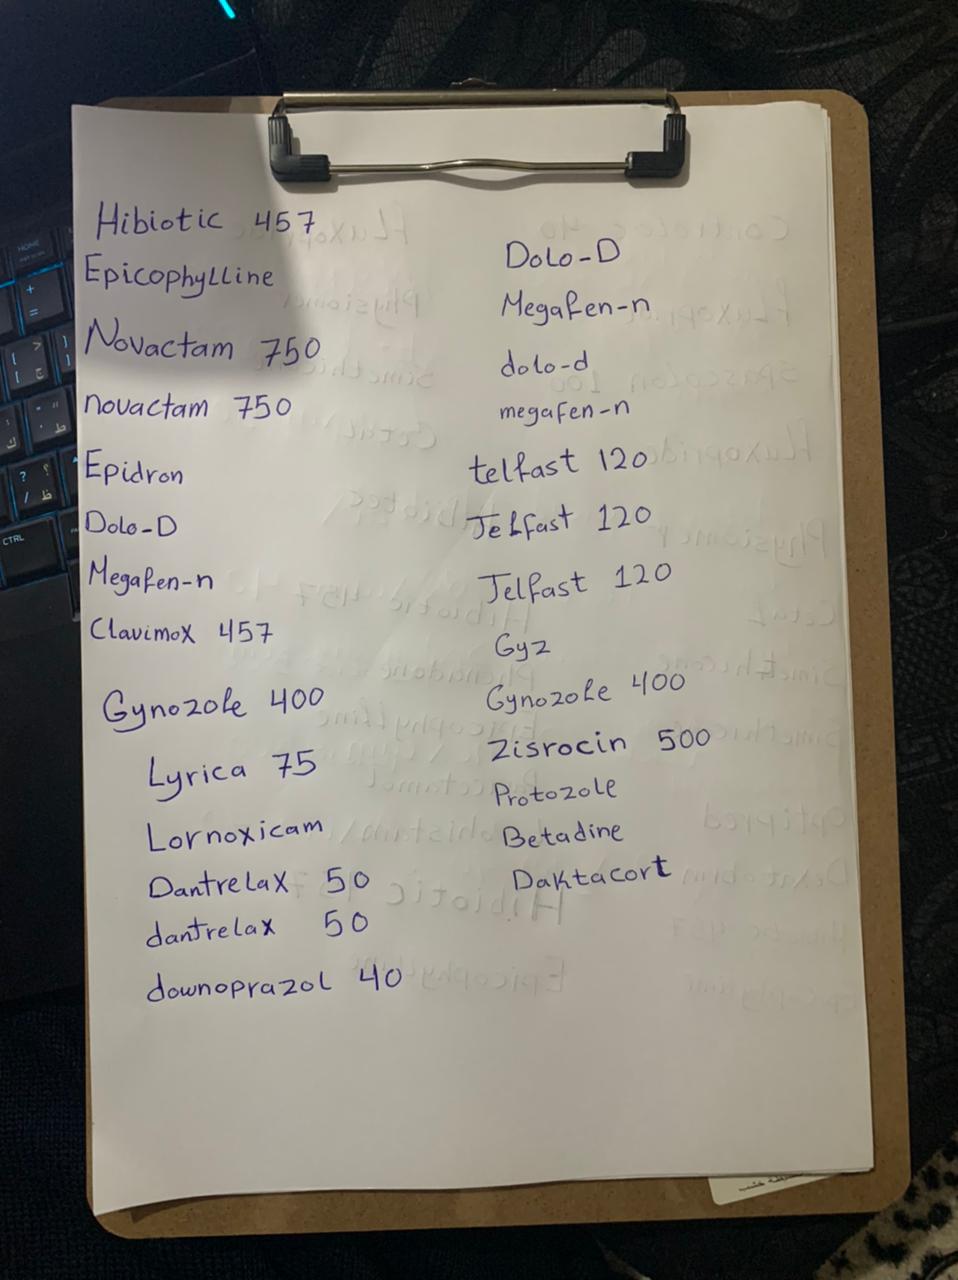 Hibiotic 457
Epicophylline
Novactam 750
novactam 750
Epidron
Dolo-D
Megafen-n
Clavimox 457
Gynozole 400
Lyrica 75
Lornoxicam
Dantrelax 50
dantrelax 50
downoprazol 40
Dolo-D
Megafen-n
dolo-d
megafen-n
telfast 120
Telfast 120
Telfast 120
Gyz
Gynozole 400
Zisrocin 500
Protozole
Betadine
Daktacort